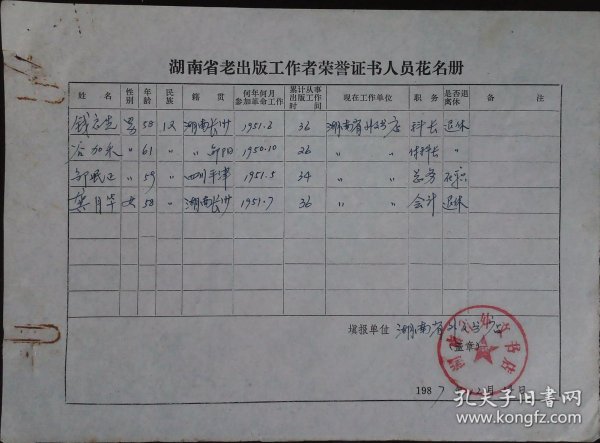 湖南省老出版工作者荣誉证书人员花名册
姓名 性别 年龄 民族 籍贯 何年何月参加革命工作 累计从事出版工作时间 现在工作单位 职务 是否退离休 备注
男 58 汉 湖南长沙 1951.2 36 湖南省外文书店 科长 退休
〃 61 〃 〃 1950.10 26 〃 〃 〃
〃 59 〃 1951.5 34 〃 〃 在职
龚月华 女 58 〃 湖南长沙 1951.7 36 〃 〃 会计 退休
填报单位 湖南省外文书店
(盖章)
1987 月 日
孔夫子旧书网
www.kongfz.com